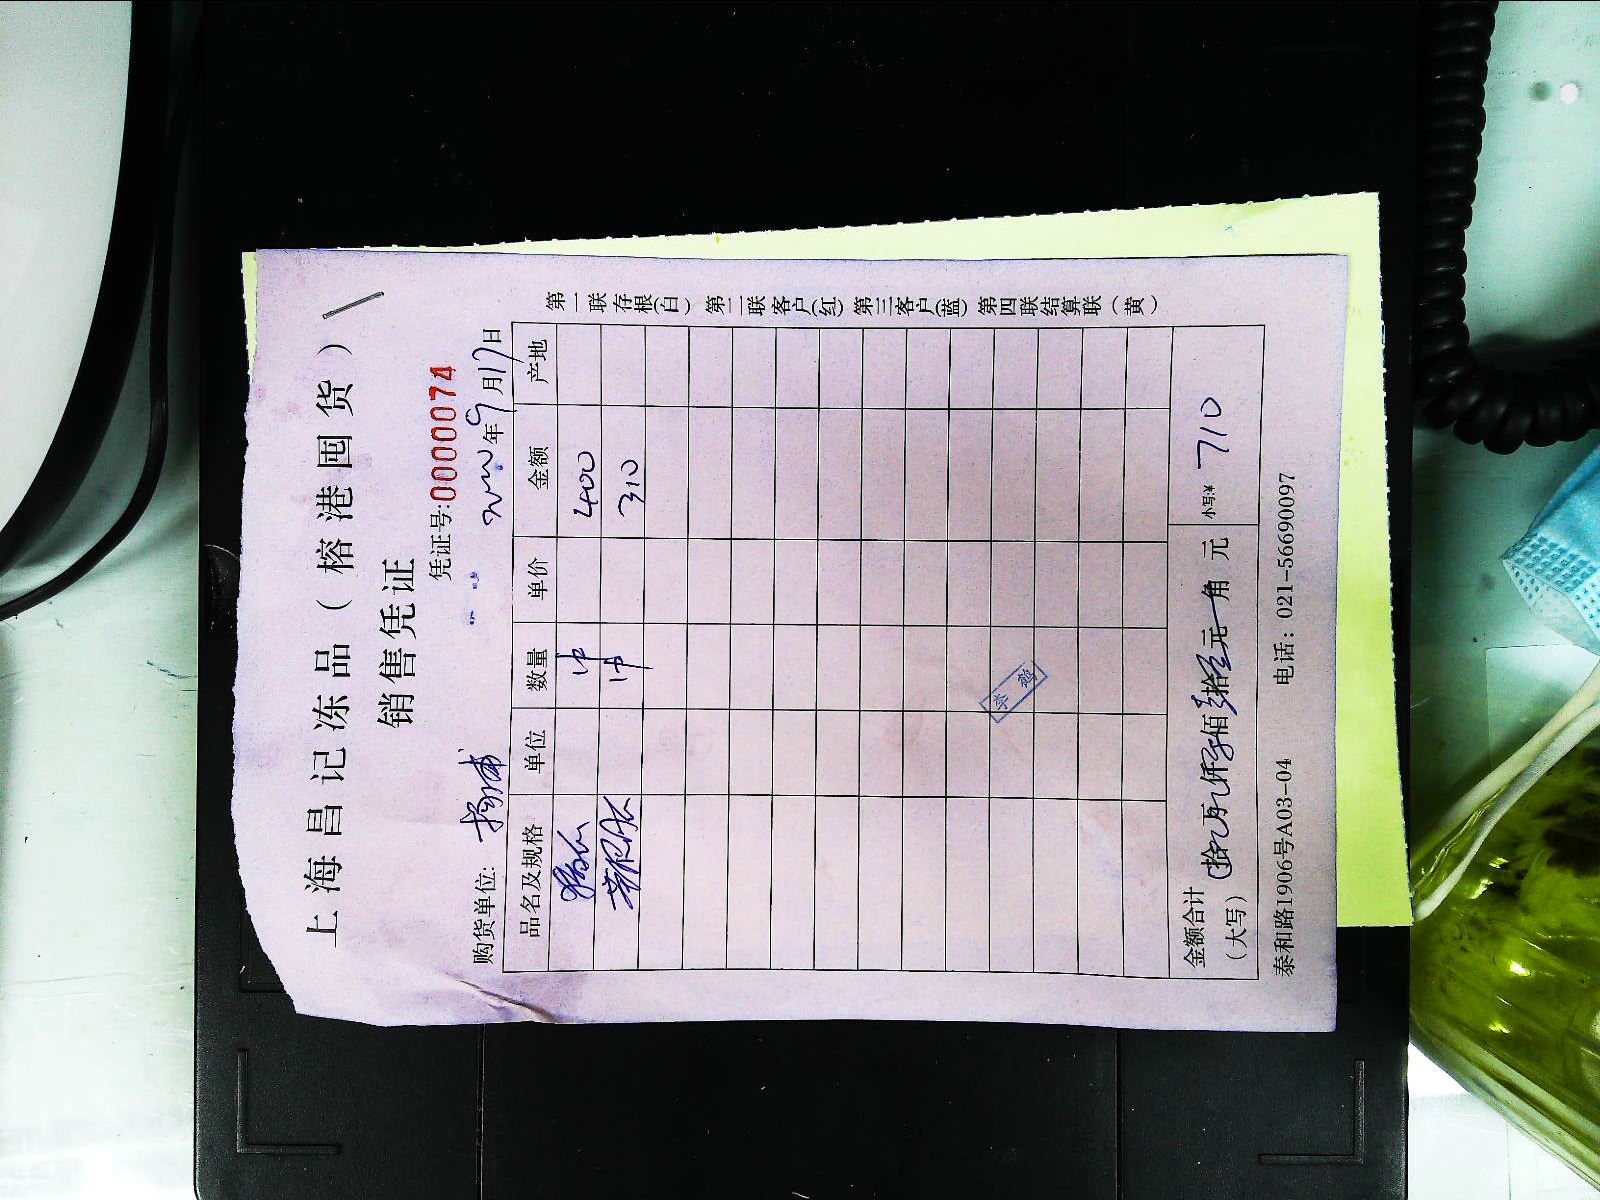 上海昌记冻品（榕港囤货）
销售凭证
凭证号:0000074
购货单位: 杨浦 年9月17日
品名及规格 单位 数量 单价 金额 产地
1件 400
1件 310
金额合计（大写） 拾 万 仟 佰 拾 元 角 元 小写:¥ 710
泰和路1906号A03-04 电话：021-56690097
第一联存根(白) 第二联客户(红) 第三客户(蓝) 第四联结算联（黄）